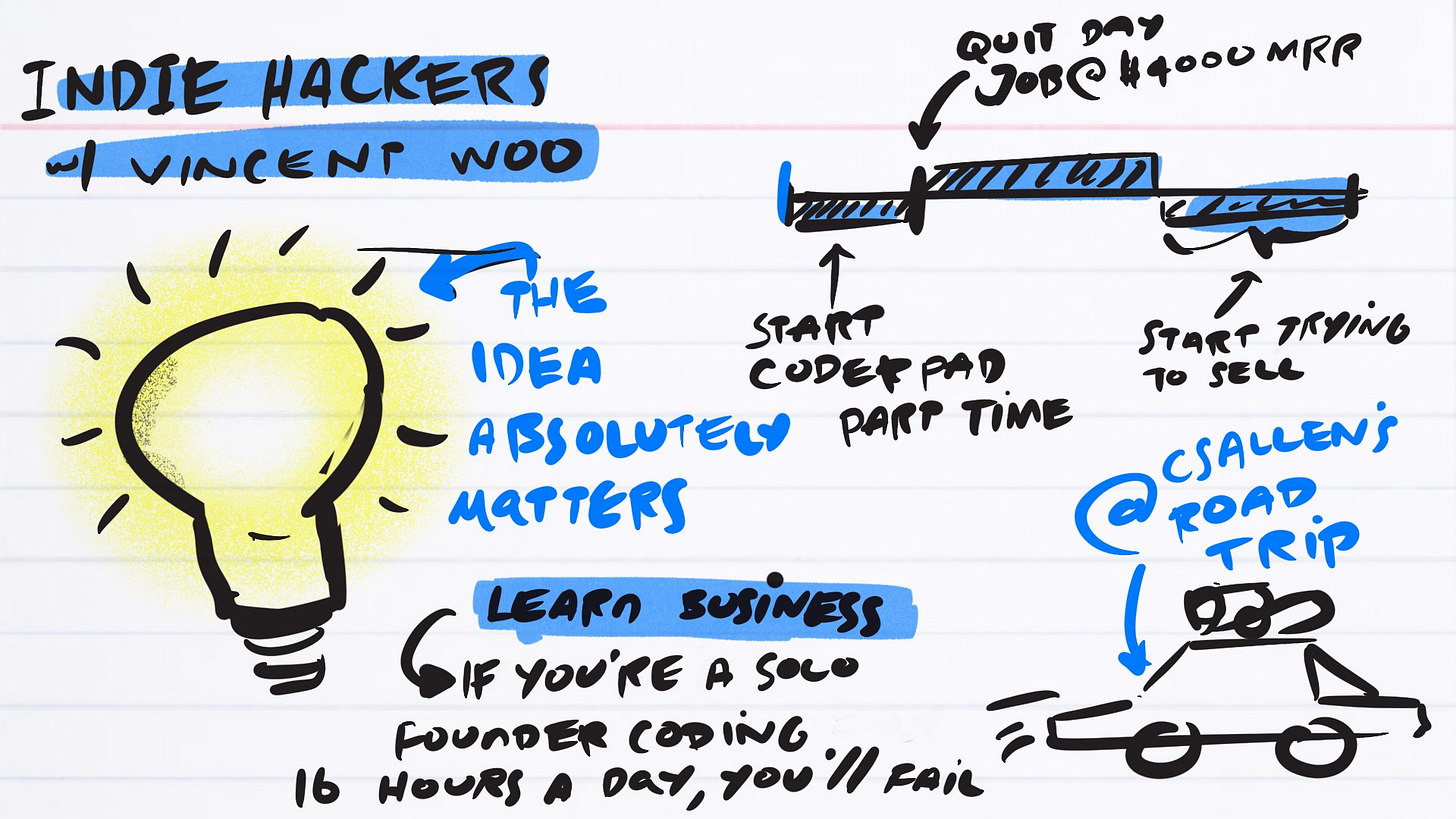 INDIE HACKERS
w/ VINCENT WOO
QUIT DAY
JOB @ $4000 MRR
START
CODERPAD
PART TIME
START TRYING
TO SELL
THE
IDEA
ABSOLUTELY
MATTERS
@ CSALLEN'S
ROAD
TRIP
LEARN BUSINESS
IF YOU'RE A SOLO
FOUNDER CODING
16 HOURS A DAY, YOU'll FAIL